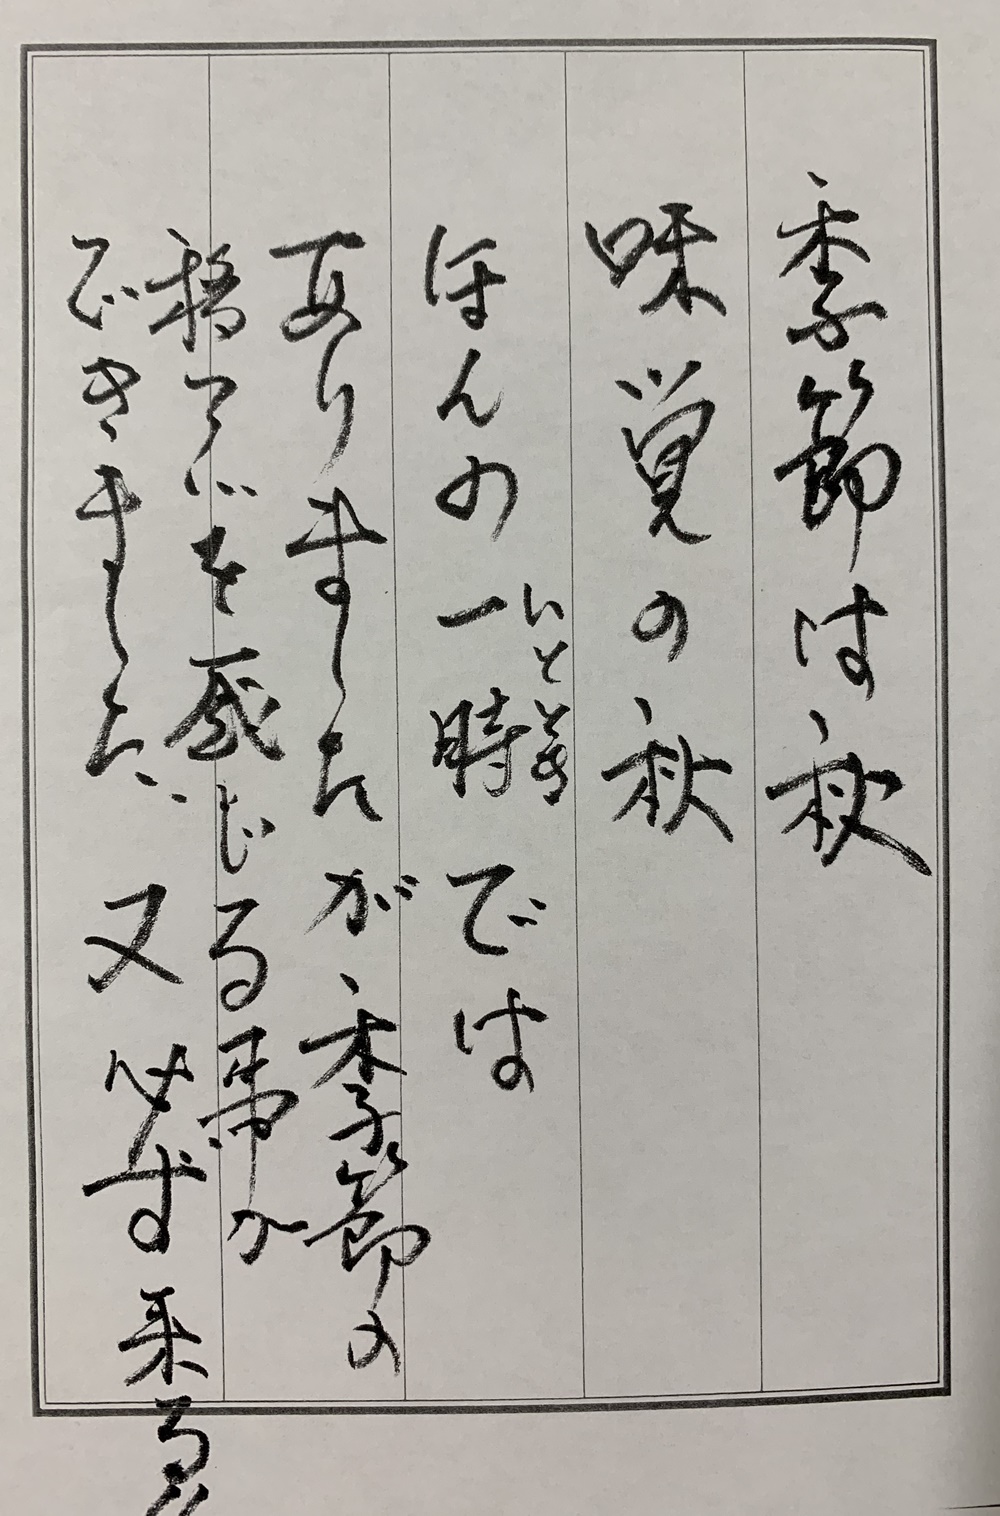 季節は秋
味覚の秋
ほんの一時では
ひととき
ありましたが季節の
移ろいを感じる事が
できました、又必ず来る!!